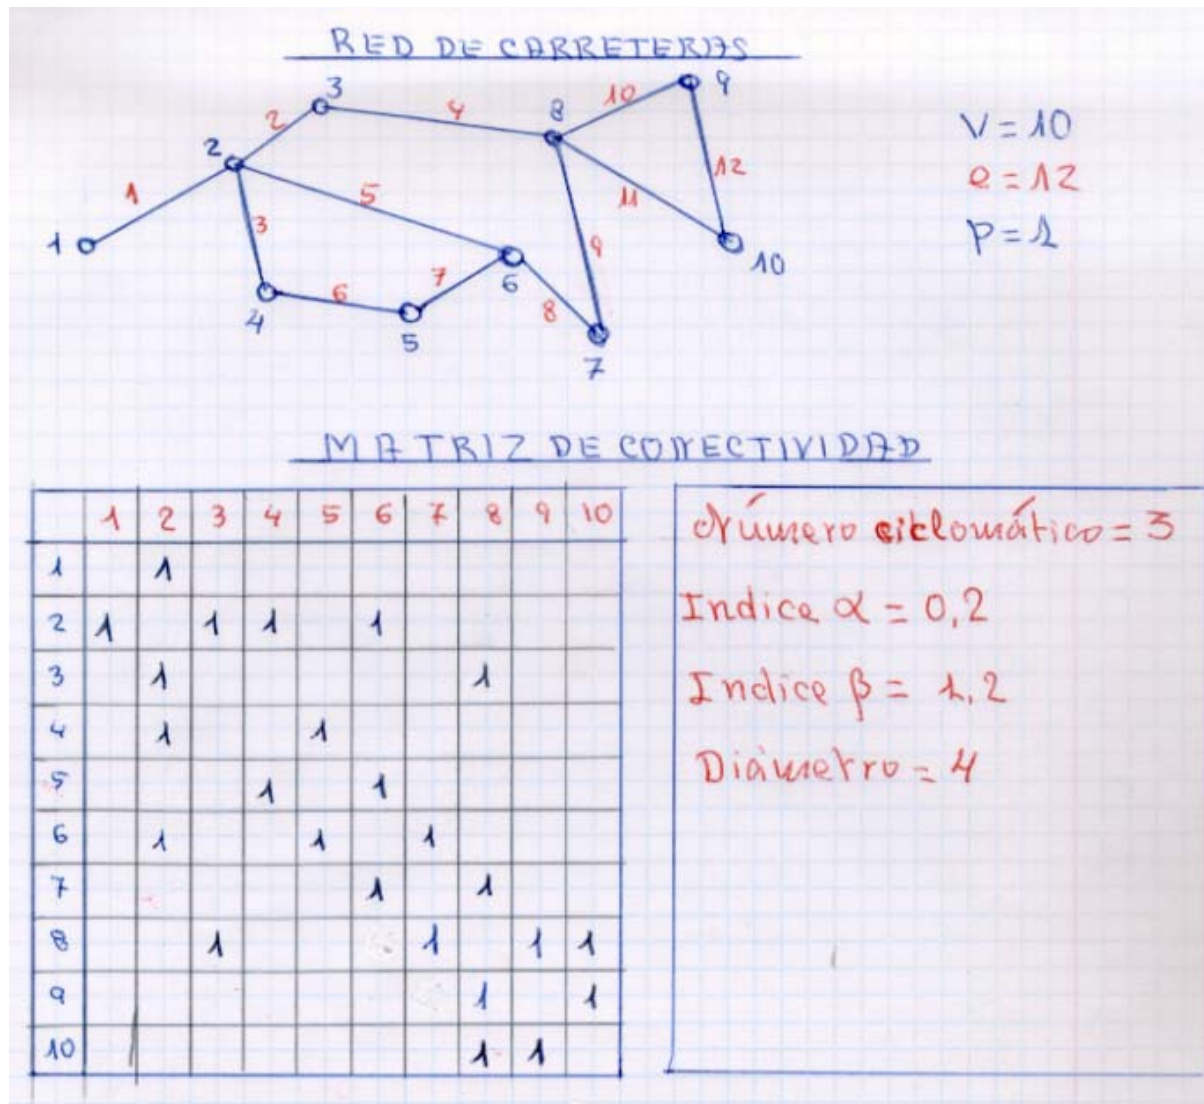 RED DE CARRETERAS
3
9
10
8
4
2
V = 10
2
12
e = 12
1
5
11
3
9
p = 1
1
10
7
6
6
8
4
5
7
MATRIZ DE CONECTIVIDAD
1 2 3 4 5 6 7 8 9 10
1 1
2 1 1 1 1
3 1 1
4 1 1
5 1 1
6 1 1 1
7 1 1
8 1 1 1 1
9 1 1
10 1 1
Número ciclomático = 3
Indice α = 0,2
Indice β = 1,2
Diámetro = 4